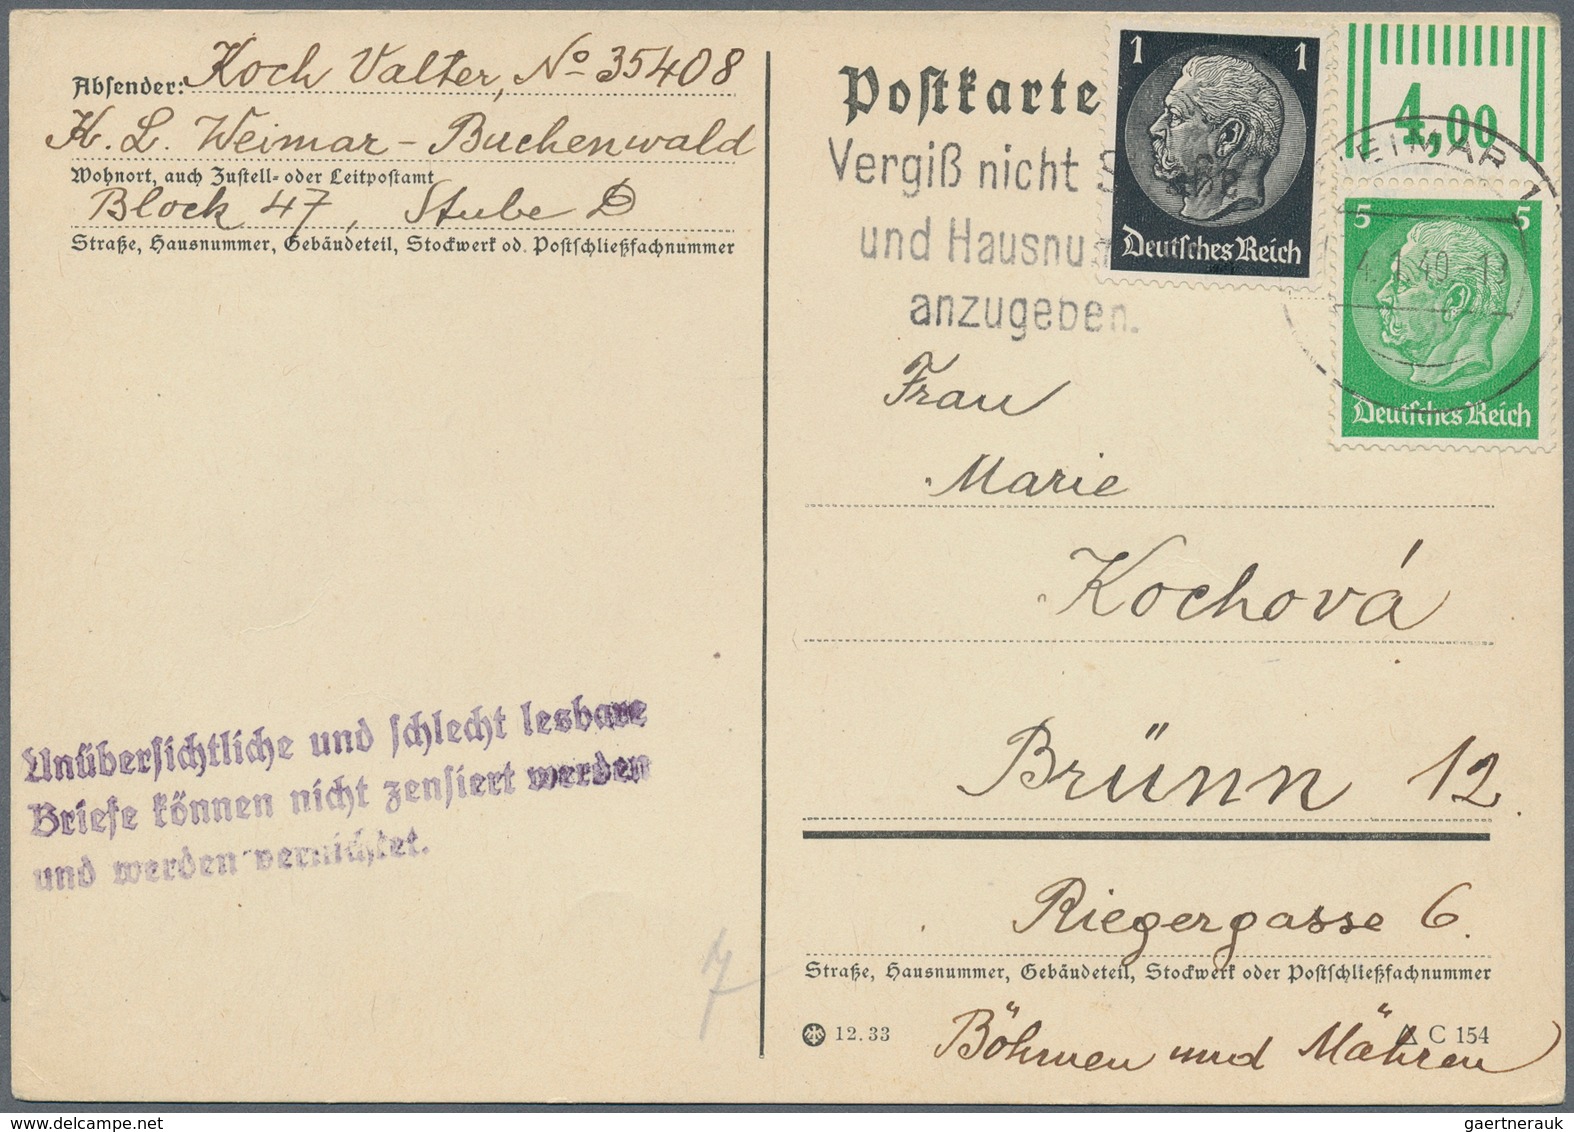 Absender: Koch Valter, No 35408
K. L. Weimar - Buchenwald
Wohnort, auch Zustell- oder Leitpostamt
Block 47, Stube D
Straße, Hausnummer, Gebäudeteil, Stockwerk od. Postschließfachnummer
Unübersichtliche und schlecht lesbare
Briefe können nicht zensiert werden
und werden vernichtet.
7
Postkarte
Vergiß nicht
und Hausnu
anzugeben.
1 1
Deutsches Reich
4,00
EIMAR
5 5
40 -13
Deutsches Reich
Frau
Marie
Kochová
Brünn 12
Riegergasse 6.
Straße, Hausnummer, Gebäudeteil, Stockwerk oder Postschließfachnummer
12.33
C 154
Böhmen und Mähren
gaertnerauk